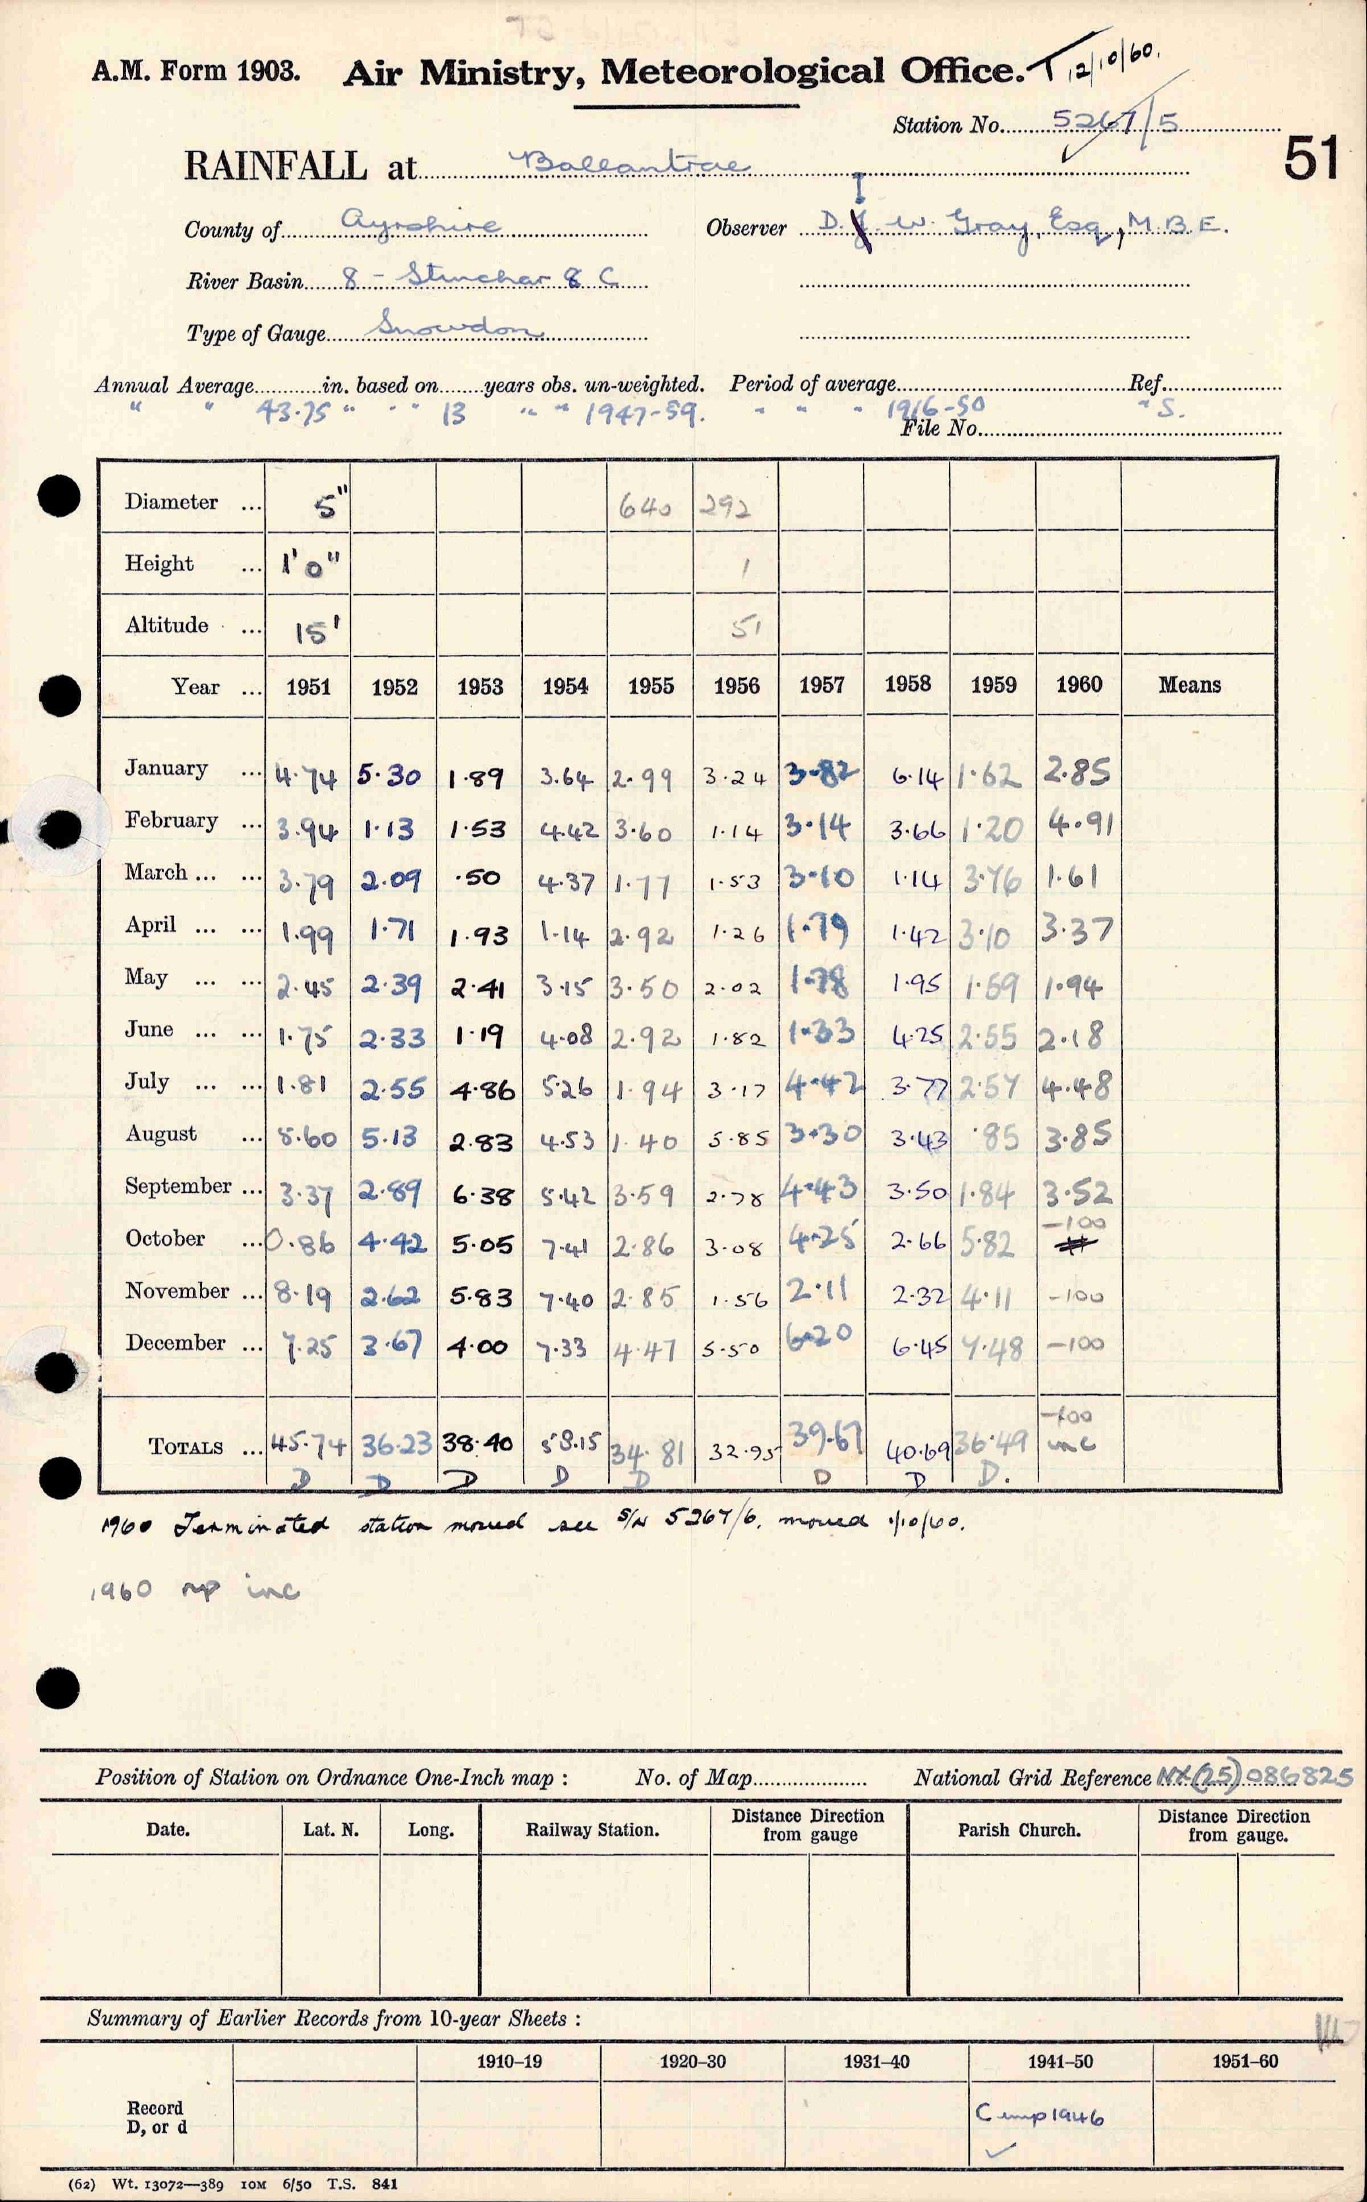 A.M. Form 1903. Air Ministry, Meteorological Office. T 12/10/60.
Station No. 5267/5
51
RAINFALL at Ballantrae
County of Ayrshire Observer D. I. W. Gray, Esq, M.B.E.
River Basin 8 - Stinchar 8 C
Type of Gauge Snowdon
Annual Average in. based on years obs. un-weighted. Period of average Ref.
" " 43.75 " " " 13 " " 1947-59. " " " 1916-50 " S.
File No.
Diameter ... 5" 640 292
Height ... 1'0" 1
Altitude ... 15' 51
Year ... 1951 1952 1953 1954 1955 1956 1957 1958 1959 1960 Means
January ... 4.74 5.30 1.89 3.64 2.99 3.24 3.82 6.14 1.62 2.85
February ... 3.94 1.13 1.53 4.42 3.60 1.14 3.14 3.66 1.20 4.91
March ... ... 3.79 2.09 .50 4.37 1.77 1.53 3.10 1.14 3.76 1.61
April ... ... 1.99 1.71 1.93 1.14 2.92 1.26 1.79 1.42 3.10 3.37
May ... ... 2.45 2.39 2.41 3.15 3.50 2.02 1.78 1.95 1.59 1.94
June ... ... 1.75 2.33 1.19 4.08 2.92 1.82 1.33 4.25 2.55 2.18
July ... ... 1.81 2.55 4.86 5.26 1.94 3.17 4.42 3.77 2.57 4.48
August ... 5.60 5.13 2.83 4.53 1.40 5.85 3.30 3.43 .85 3.85
September ... 3.37 2.89 6.38 5.42 3.59 2.78 4.43 3.50 1.84 3.52
October ... 0.86 4.42 5.05 7.41 2.86 3.08 4.25 2.66 5.82 -100
November ... 8.19 2.62 5.83 7.40 2.85 1.56 2.11 2.32 4.11 -100
December ... 7.25 3.67 4.00 7.33 4.47 5.50 6.20 6.45 7.48 -100
-100
TOTALS ... 45.74 36.23 38.40 58.15 34.81 32.95 39.67 40.69 36.49 inc
D D D D D D D D.
1960 Terminated station moved see S/N 5267/6. moved 1/10/60.
1960 inc
Position of Station on Ordnance One-Inch map : No. of Map National Grid Reference NX (25) 086825
Date. Lat. N. Long. Railway Station. Distance Direction from gauge Parish Church. Distance Direction from gauge.
Summary of Earlier Records from 10-year Sheets :
1910–19 1920–30 1931–40 1941–50 1951–60
Record D, or d C 1946
(62) Wt. 13072—389 10M 6/50 T.S. 841